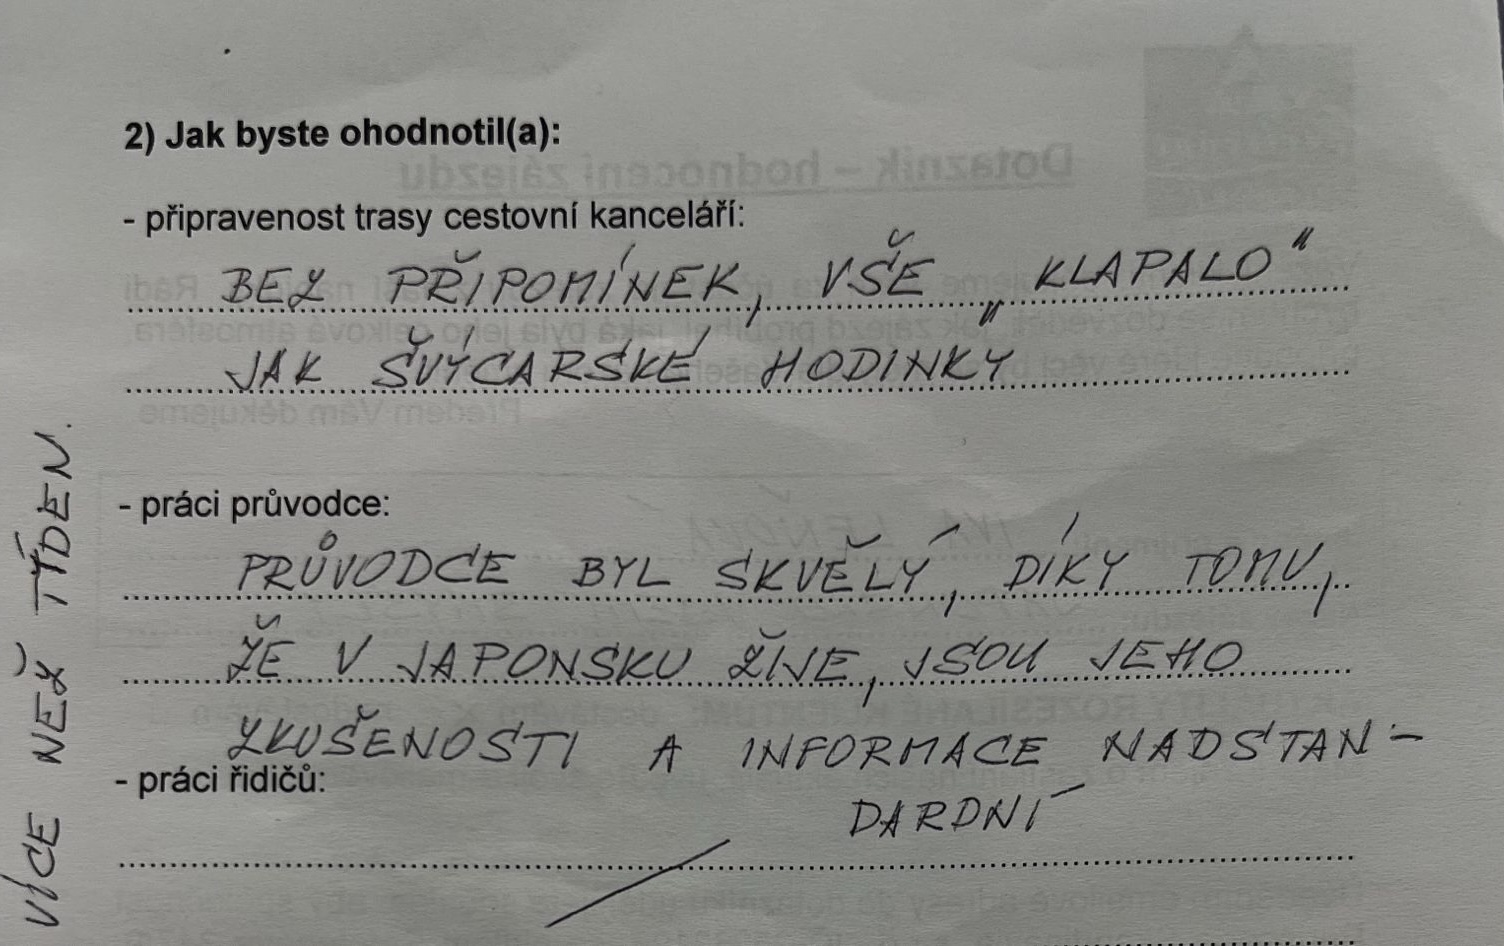 2) Jak byste ohodnotil(a):
- připravenost trasy cestovní kanceláří:
BEZ PŘIPOMÍNEK, VŠE „KLAPALO“
JAK ŠVÝCARSKÉ HODINKY
- práci průvodce:
PRŮVODCE BYL SKVĚLÝ, DÍKY TOMU,
ŽE V JAPONSKU ŽIJE, JSOU JEHO
ZKUŠENOSTI A INFORMACE NADSTAN-
DARDNÍ
- práci řidičů:
VÍCE NEŽ TÝDEN.